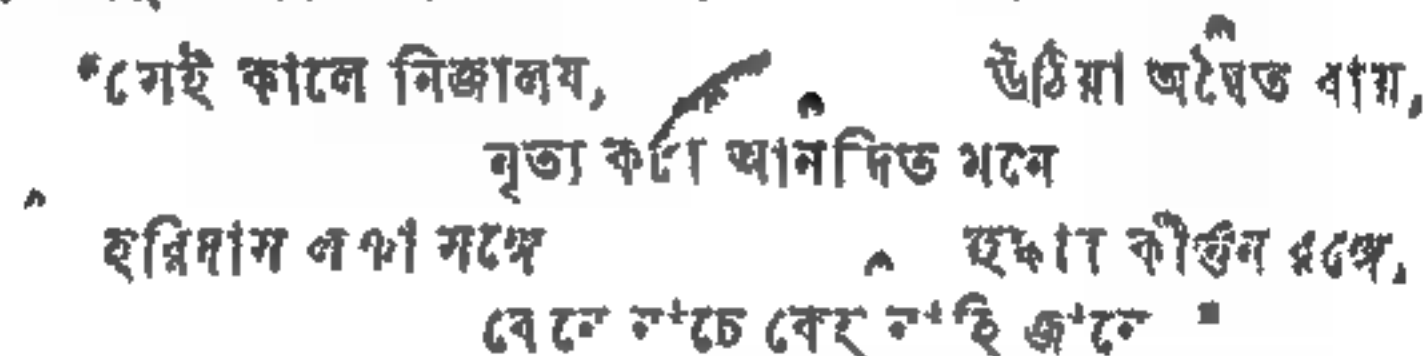 "সেই কালে নিজালয, উঠিয়া অদ্বৈত রায়,
নৃত্য করে আনন্দিত মনে
হরিদাস লঞা সঙ্গে হুঙ্কার কীর্ত্তন রঙ্গে,
কেনে নাচে কেহ নাহি জানে "